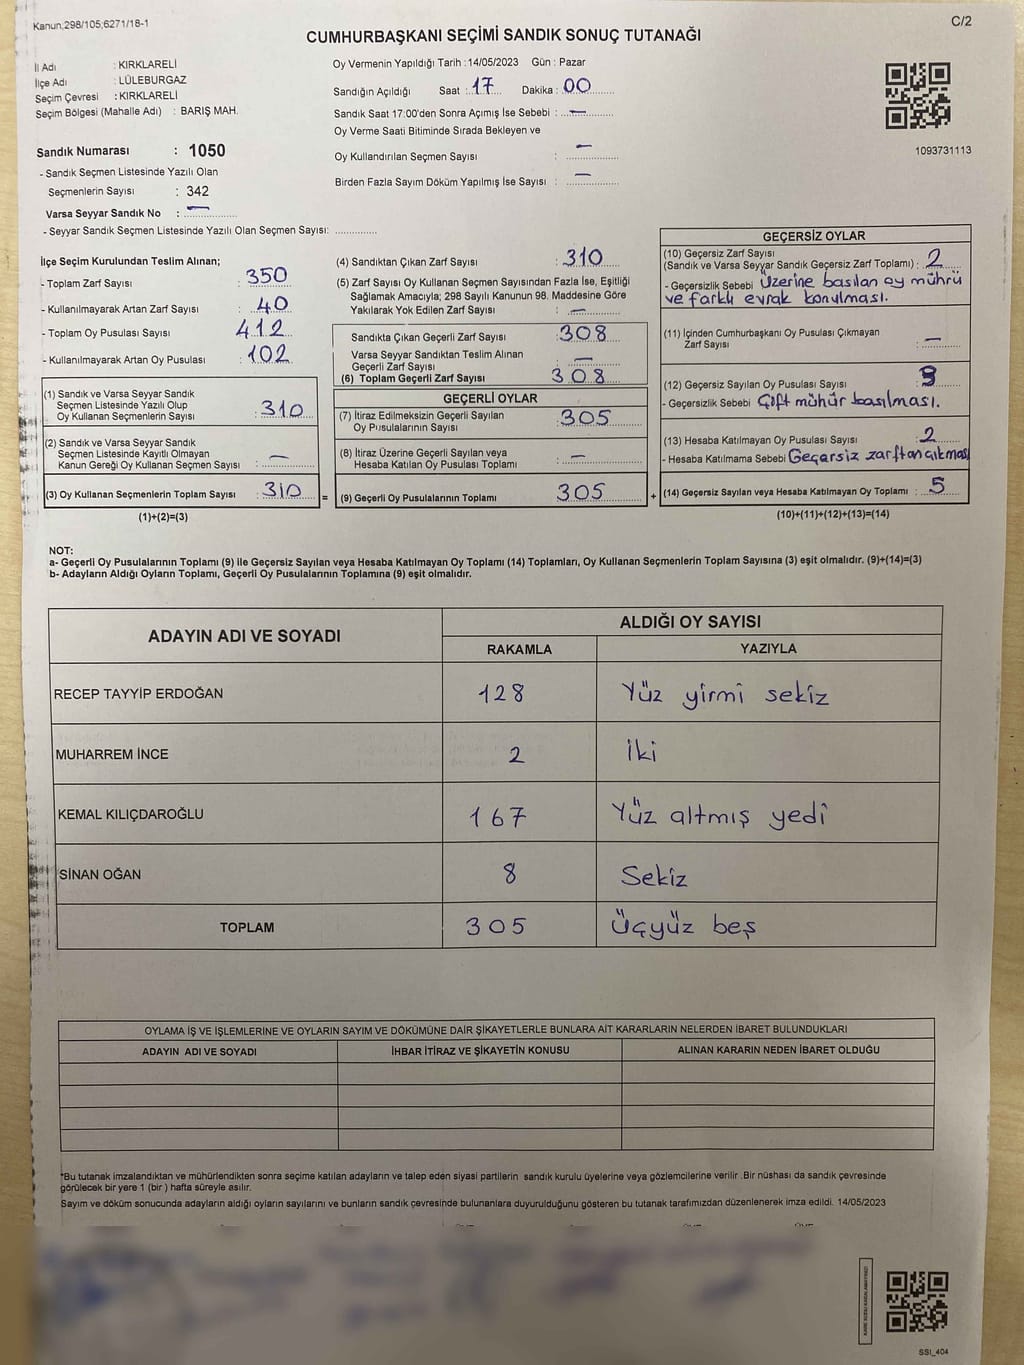 Kanun,298/105;6271/18-1
C/2
CUMHURBAŞKANI SEÇİMİ SANDIK SONUÇ TUTANAĞI
İl Adı : KIRKLARELİ
İlçe Adı : LÜLEBURGAZ
Seçim Çevresi : KIRKLARELİ
Seçim Bölgesi (Mahalle Adı) : BARIŞ MAH.
Sandık Numarası : 1050
- Sandık Seçmen Listesinde Yazılı Olan
Seçmenlerin Sayısı : 342
Varsa Seyyar Sandık No : —
- Seyyar Sandık Seçmen Listesinde Yazılı Olan Seçmen Sayısı: ..............
Oy Vermenin Yapıldığı Tarih :14/05/2023 Gün : Pazar
Sandığın Açıldığı Saat : 17 Dakika : 00
Sandık Saat 17:00'den Sonra Açımış İse Sebebi : —
Oy Verme Saati Bitiminde Sırada Bekleyen ve
Oy Kullandırılan Seçmen Sayısı : —
Birden Fazla Sayım Döküm Yapılmış İse Sayısı : —
1093731113
İlçe Seçim Kurulundan Teslim Alınan;
- Toplam Zarf Sayısı : 350
- Kullanılmayarak Artan Zarf Sayısı : 40
- Toplam Oy Pusulası Sayısı : 412
- Kullanılmayarak Artan Oy Pusulası : 102
(1) Sandık ve Varsa Seyyar Sandık
Seçmen Listesinde Yazılı Olup
Oy Kullanan Seçmenlerin Sayısı : 310
(2) Sandık ve Varsa Seyyar Sandık
Seçmen Listesinde Kayıtlı Olmayan
Kanun Gereği Oy Kullanan Seçmen Sayısı : —
(3) Oy Kullanan Seçmenlerin Toplam Sayısı : 310 =
(1)+(2)=(3)
(4) Sandıktan Çıkan Zarf Sayısı : 310
(5) Zarf Sayısı Oy Kullanan Seçmen Sayısından Fazla İse, Eşitliği
Sağlamak Amacıyla; 298 Sayılı Kanunun 98. Maddesine Göre
Yakılarak Yok Edilen Zarf Sayısı : —
Sandıkta Çıkan Geçerli Zarf Sayısı : 308
Varsa Seyyar Sandıktan Teslim Alınan
Geçerli Zarf Sayısı : —
(6) Toplam Geçerli Zarf Sayısı : 308
GEÇERLİ OYLAR
(7) İtiraz Edilmeksizin Geçerli Sayılan
Oy Pusulalarının Sayısı : 305
(8) İtiraz Üzerine Geçerli Sayılan veya
Hesaba Katılan Oy Pusulası Toplamı : —
(9) Geçerli Oy Pusulalarının Toplamı : 305 +
GEÇERSİZ OYLAR
(10) Geçersiz Zarf Sayısı
(Sandık ve Varsa Seyyar Sandık Geçersiz Zarf Toplamı) : 2
- Geçersizlik Sebebi Üzerine basılan oy mührü
ve farklı evrak konulması.
(11) İçinden Cumhurbaşkanı Oy Pusulası Çıkmayan
Zarf Sayısı : —
(12) Geçersiz Sayılan Oy Pusulası Sayısı : 3
- Geçersizlik Sebebi Çift mühür basılması.
(13) Hesaba Katılmayan Oy Pusulası Sayısı : 2
- Hesaba Katılmama Sebebi Geçersiz zarftan çıkması
(14) Geçersiz Sayılan veya Hesaba Katılmayan Oy Toplamı : 5
(10)+(11)+(12)+(13)=(14)
NOT:
a- Geçerli Oy Pusulalarının Toplamı (9) ile Geçersiz Sayılan veya Hesaba Katılmayan Oy Toplamı (14) Toplamları, Oy Kullanan Seçmenlerin Toplam Sayısına (3) eşit olmalıdır. (9)+(14)=(3)
b- Adayların Aldığı Oyların Toplamı, Geçerli Oy Pusulalarının Toplamına (9) eşit olmalıdır.
ADAYIN ADI VE SOYADI
ALDIĞI OY SAYISI
RAKAMLA YAZIYLA
RECEP TAYYİP ERDOĞAN 128 Yüz yirmi sekiz
MUHARREM İNCE 2 İki
KEMAL KILIÇDAROĞLU 167 Yüz altmış yedi
SİNAN OĞAN 8 Sekiz
TOPLAM 305 Üçyüz beş
OYLAMA İŞ VE İŞLEMLERİNE VE OYLARIN SAYIM VE DÖKÜMÜNE DAİR ŞİKAYETLERLE BUNLARA AİT KARARLARIN NELERDEN İBARET BULUNDUKLARI
ADAYIN ADI VE SOYADI İHBAR İTİRAZ VE ŞİKAYETİN KONUSU ALINAN KARARIN NEDEN İBARET OLDUĞU
*Bu tutanak imzalandıktan ve mühürlendikten sonra seçime katılan adayların ve talep eden siyasi partilerin sandık kurulu üyelerine veya gözlemcilerine verilir .Bir nüshası da sandık çevresinde
görülecek bir yere 1 (bir ) hafta süreyle asılır.
Sayım ve döküm sonucunda adayların aldığı oyların sayılarını ve bunların sandık çevresinde bulunanlara duyurulduğunu gösteren bu tutanak tarafımızdan düzenlenerek imza edildi. 14/05/2023
SSI_404